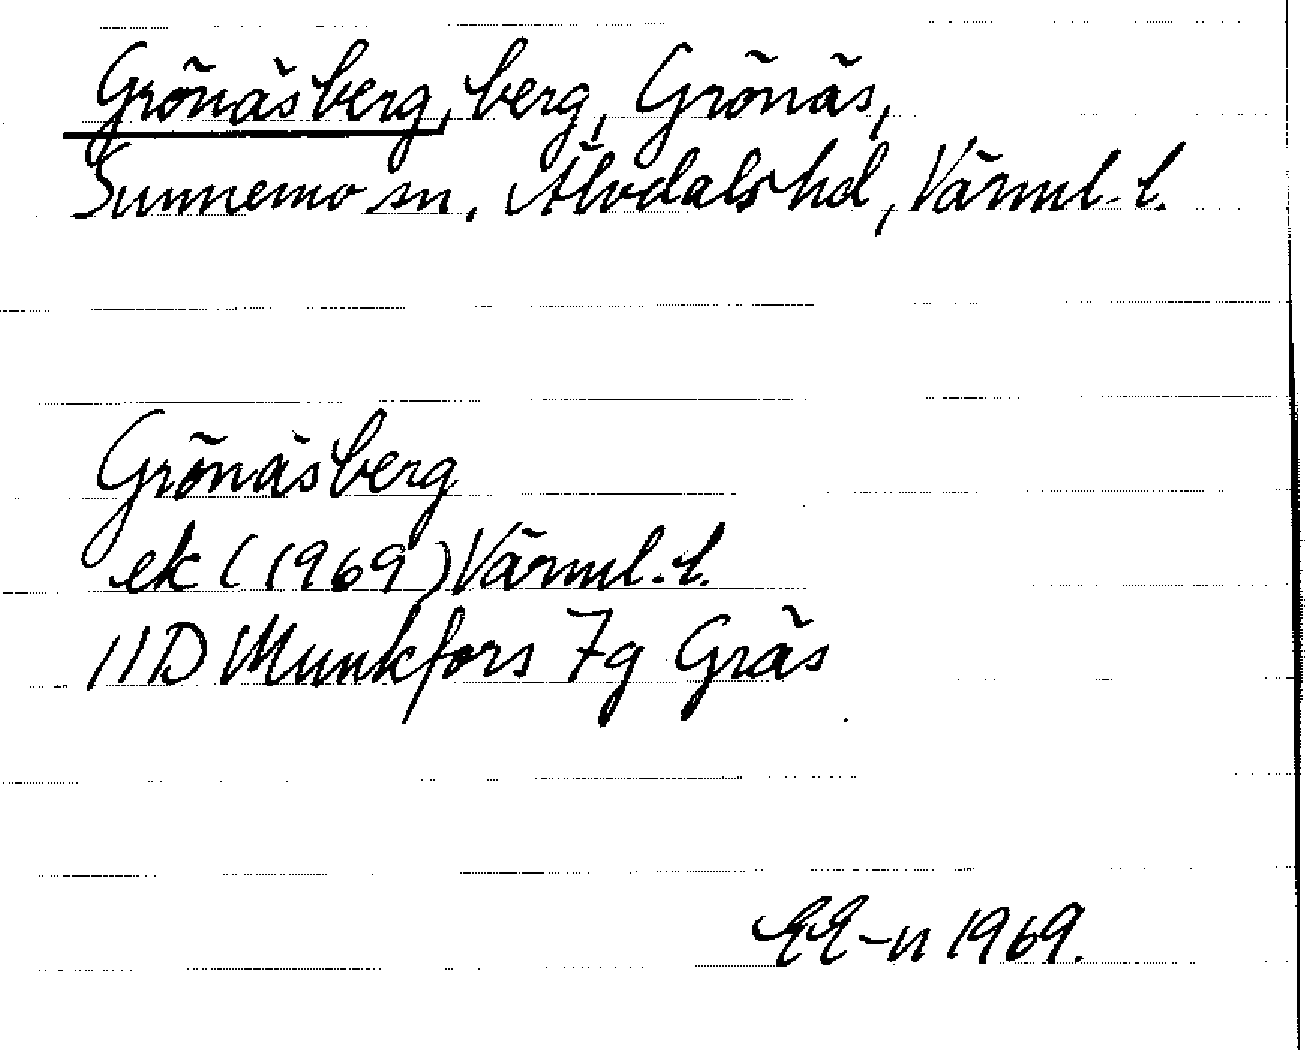 Grönäsberg, berg, Grönäs,
Sunnemo sn, Älvdals hd, Värml. l.
Grönäsberg
ek (1969) Värml. l.
11D Munkfors 7g Gräs
EE-n 1969.